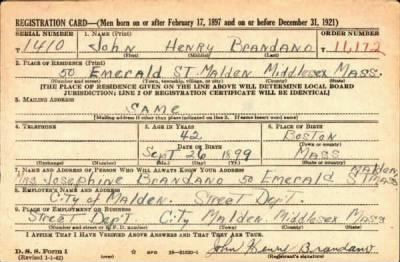 REGISTRATION CARD—(Men born on or after February 17, 1897 and on or before December 31, 1921)
SERIAL NUMBER 1. NAME (Print) ORDER NUMBER
1410 John Henry Brandano 11,172
(First) (Middle) (Last)
2. PLACE OF RESIDENCE (Print)
50 Emerald St. Malden Middlesex Mass.
(Number and street) (Town, township, village, or city) (County) (State)
[THE PLACE OF RESIDENCE GIVEN ON THE LINE ABOVE WILL DETERMINE LOCAL BOARD
JURISDICTION; LINE 2 OF REGISTRATION CERTIFICATE WILL BE IDENTICAL]
3. MAILING ADDRESS
SAME
[Mailing address if other than place indicated on line 2. If same insert word same]
4. TELEPHONE 5. AGE IN YEARS 6. PLACE OF BIRTH
42 Boston
DATE OF BIRTH (Town or county)
Sept 26 1899 Mass
(Exchange) (Number) (Mo.) (Day) (Yr.) (State or country)
7. NAME AND ADDRESS OF PERSON WHO WILL ALWAYS KNOW YOUR ADDRESS Malden
Mrs Josephine Brandano 50 Emerald St Mass
8. EMPLOYER'S NAME AND ADDRESS
City of Malden. Street Dep't.
9. PLACE OF EMPLOYMENT OR BUSINESS
Street Dep't. City Malden. Middlesex Mass
(Number and street or R. F. D. number) (Town) (County) (State)
I AFFIRM THAT I HAVE VERIFIED ABOVE ANSWERS AND THAT THEY ARE TRUE.
D. S. S. Form 1
(Revised 1-1-42) GPO John Henry Brandano
(Registrant's signature)